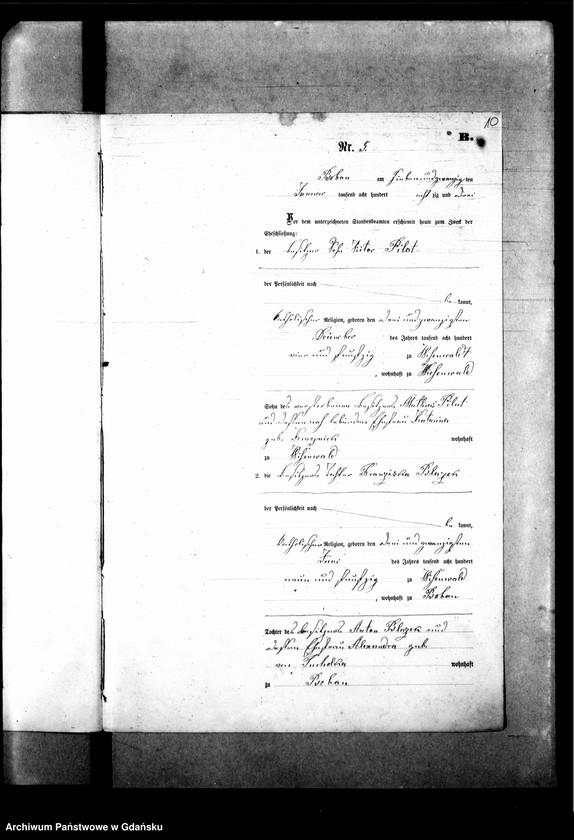 10
B.
Nr. 5.
Boban am Siebenundzwanzig ten
Januar tausend acht hundert acht zig und drei
Vor dem unterzeichneten Standesbeamten erschienen heute zum Zweck der
Eheschließung:
1. der Besitzer Sohn Victor Pilat
der Persönlichkeit nach
be kannt,
katholischer Religion, geboren den drei und zwanzigsten
Dezember des Jahres tausend acht hundert
vier und fünfzig zu
, wohnhaft zu
Sohn des verstorbenen Besitzers Mathias Pilat
und dessen noch lebenden Ehefrau
geb. wohnhaft
zu
2. die Besitzers Tochter Franziska
der Persönlichkeit nach
be kannt,
katholischer Religion, geboren den drei und zwanzigsten
Juni des Jahres tausend acht hundert
neun und fünfzig zu
, wohnhaft zu Boban
Tochter des Besitzers Anton und
dessen Ehefrau Alexandra geb
wohnhaft
zu Boban
Archiwum Państwowe w Gdańsku